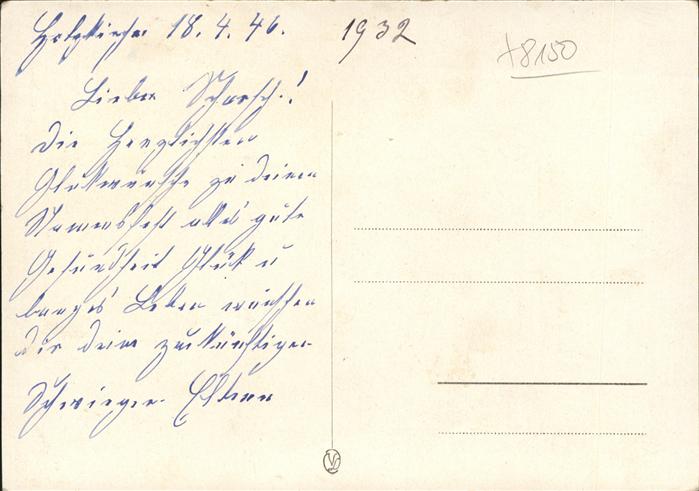 Holzkirchen 18.4.46.
1932
+8150
Lieber Schorsch!
Die Herzlichsten
Glükwünsche zu deinem
Namensfest alles gute
Gesundheit Glük u
langes Leben wünschen
dir deine zukünftigen
Schwieger-Eltern